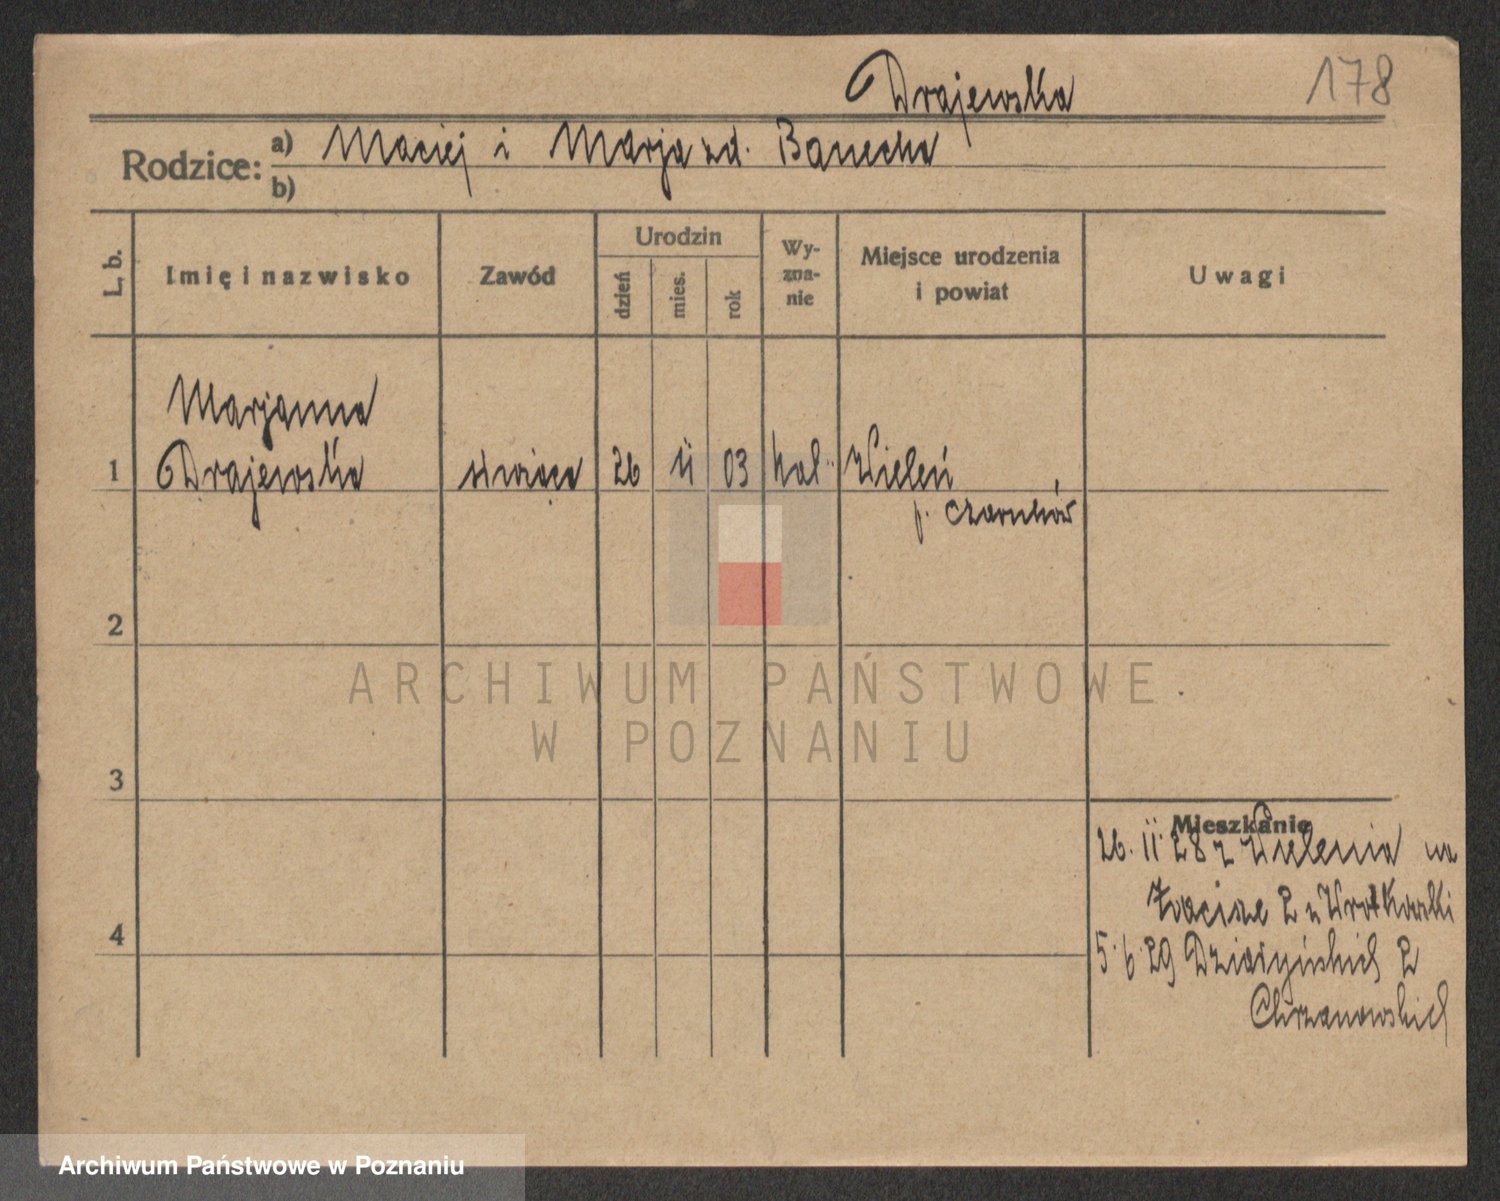 Drajewska
178
Rodzice:
a) Maciej i Marja zd. Banecka
b)
L. b.
Imię i nazwisko
Zawód
Urodzin
dzień
mies.
rok
Wy-
zna-
nie
Miejsce urodzenia
i powiat
Uwagi
Marjanna
1 Drajewska 26 II 03 kat. Wieleń
p. Czarnków
2
3
Mieszkanie
26. II 28 z Wielenia na
4
5.6.29 Działyńskich 2
Chrzanowskich
ARCHIWUM PAŃSTWOWE
W POZNANIU
Archiwum Państwowe w Poznaniu